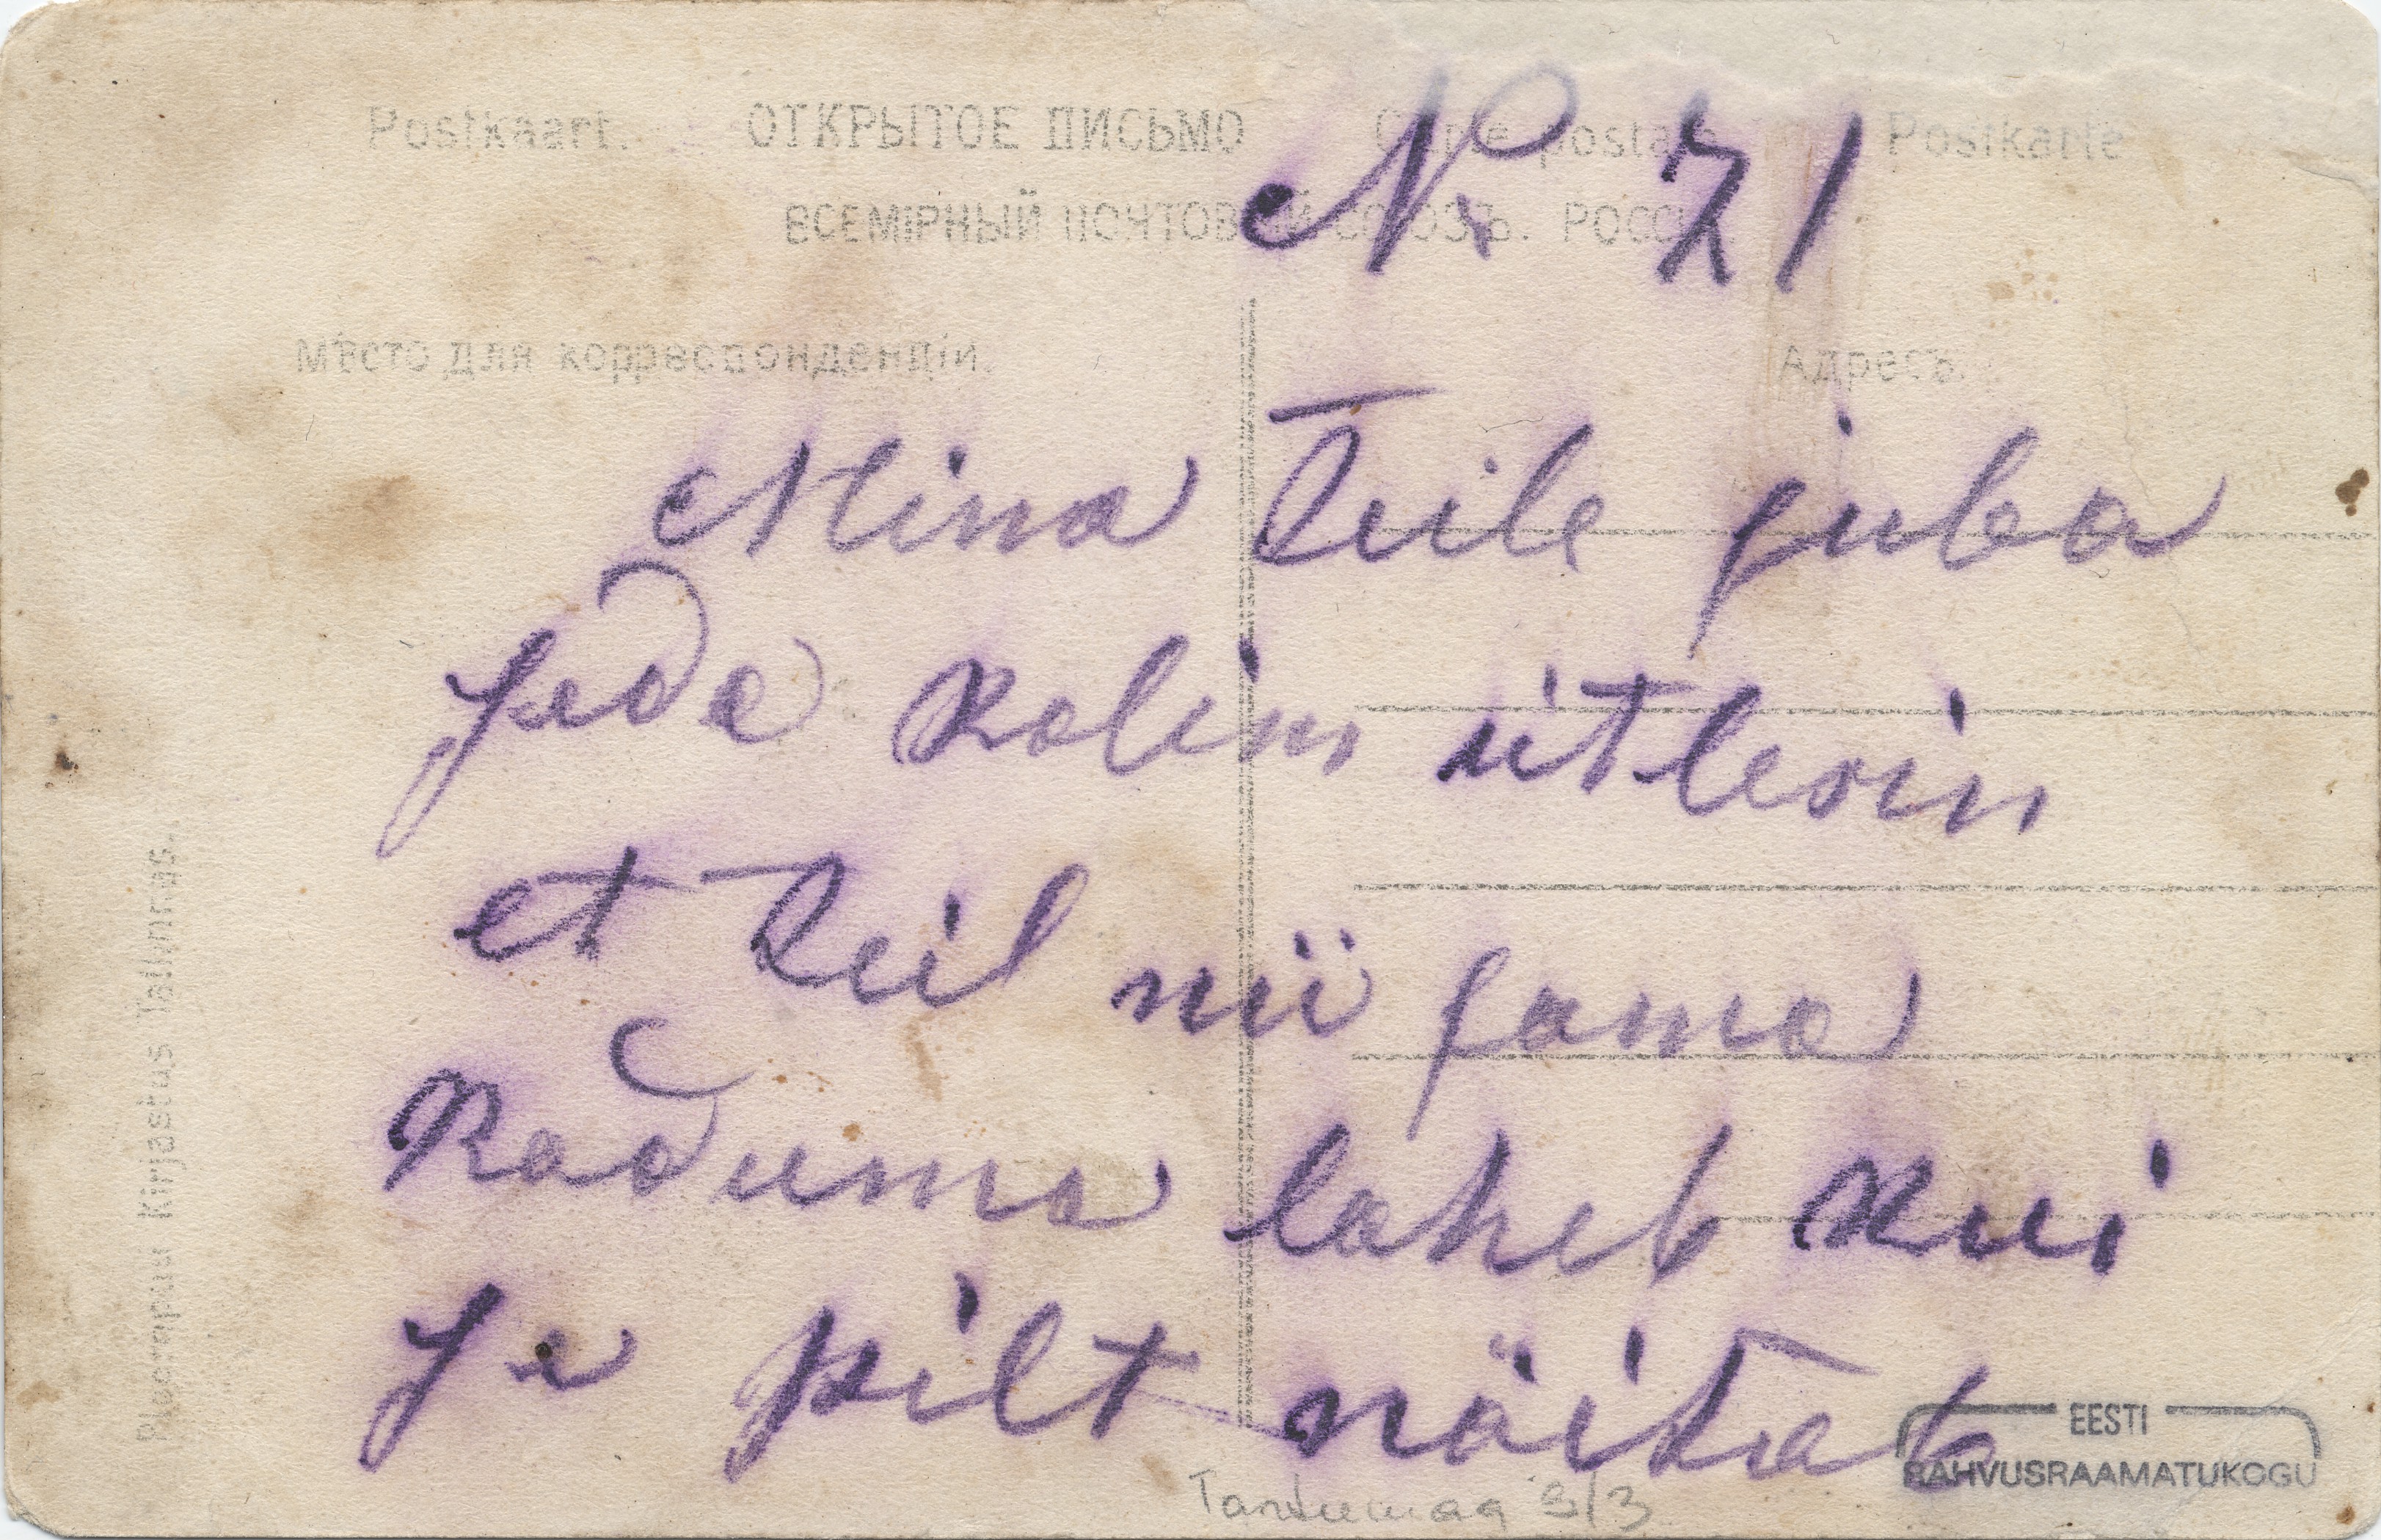 Postkaart. ОТКРЫТОЕ ПИСЬМО Carte postale Postkarte
ВСЕМІРНЫЙ ПОЧТОВЫЙ СОЮЗЪ. РОССІЯ
№ 71
Мѣсто для корреспонденціи.
Адресъ.
Mina Teile juba
seda kolim ütlesin
et Teil nii sama
kaduma laheb kui
se pilt näitab
Kirjastus Tallinnas.
EESTI
RAHVUSRAAMATUKOGU